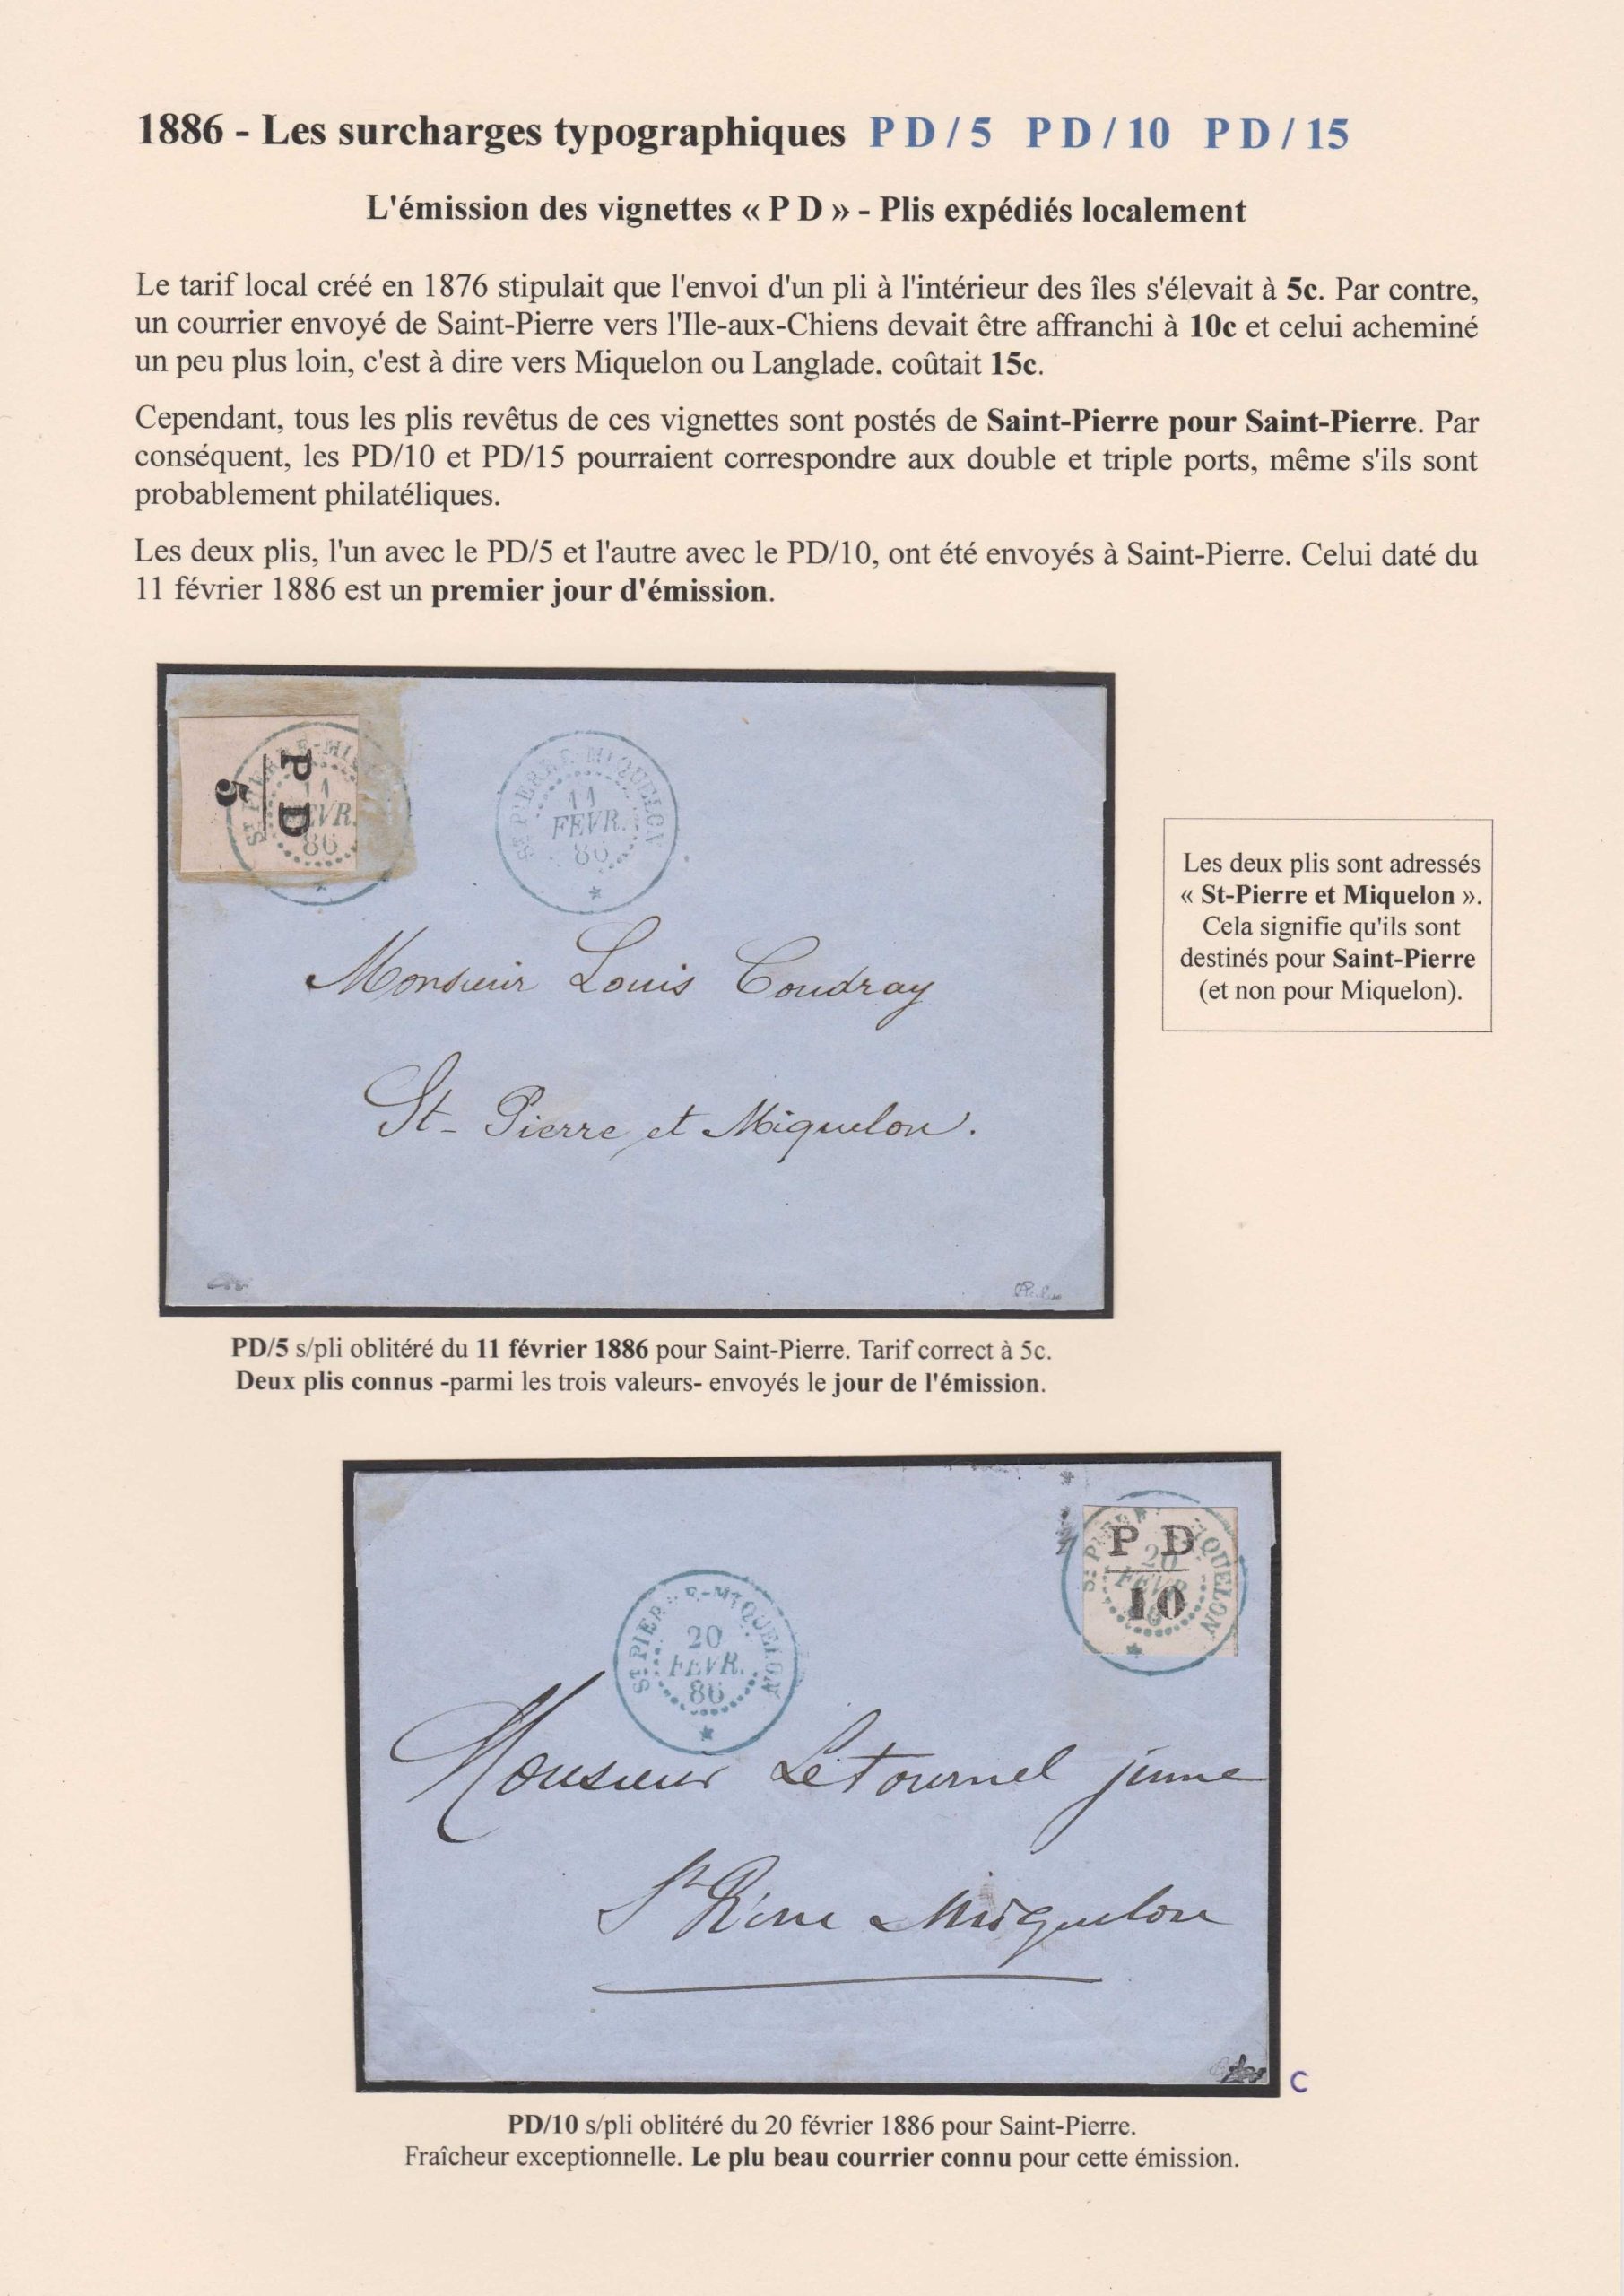 1886 - Les surcharges typographiques P D / 5 P D / 10 P D / 15
L'émission des vignettes « P D » - Plis expédiés localement
Le tarif local créé en 1876 stipulait que l'envoi d'un pli à l'intérieur des îles s'élevait à 5c. Par contre,
un courrier envoyé de Saint-Pierre vers l'Ile-aux-Chiens devait être affranchi à 10c et celui acheminé
un peu plus loin, c'est à dire vers Miquelon ou Langlade. coûtait 15c.
Cependant, tous les plis revêtus de ces vignettes sont postés de Saint-Pierre pour Saint-Pierre. Par
conséquent, les PD/10 et PD/15 pourraient correspondre aux double et triple ports, même s'ils sont
probablement philatéliques.
Les deux plis, l'un avec le PD/5 et l'autre avec le PD/10, ont été envoyés à Saint-Pierre. Celui daté du
11 février 1886 est un premier jour d'émission.
P D
5
ST PIERRE-MI
11
FEVR.
86
ST PIERRE-MIQUELON
11
FEVR.
86
Monsieur Louis Coudray
St- Pierre et Miquelon.
Les deux plis sont adressés
« St-Pierre et Miquelon ».
Cela signifie qu'ils sont
destinés pour Saint-Pierre
(et non pour Miquelon).
PD/5 s/pli oblitéré du 11 février 1886 pour Saint-Pierre. Tarif correct à 5c.
Deux plis connus -parmi les trois valeurs- envoyés le jour de l'émission.
P D
10
ST PIERRE-MIQUELON
20
FEVR.
ST PIERRE-MIQUELON
20
FEVR.
86
Monsieur Letournel jeune
St Pierre Miquelon
C
PD/10 s/pli oblitéré du 20 février 1886 pour Saint-Pierre.
Fraîcheur exceptionnelle. Le plu beau courrier connu pour cette émission.